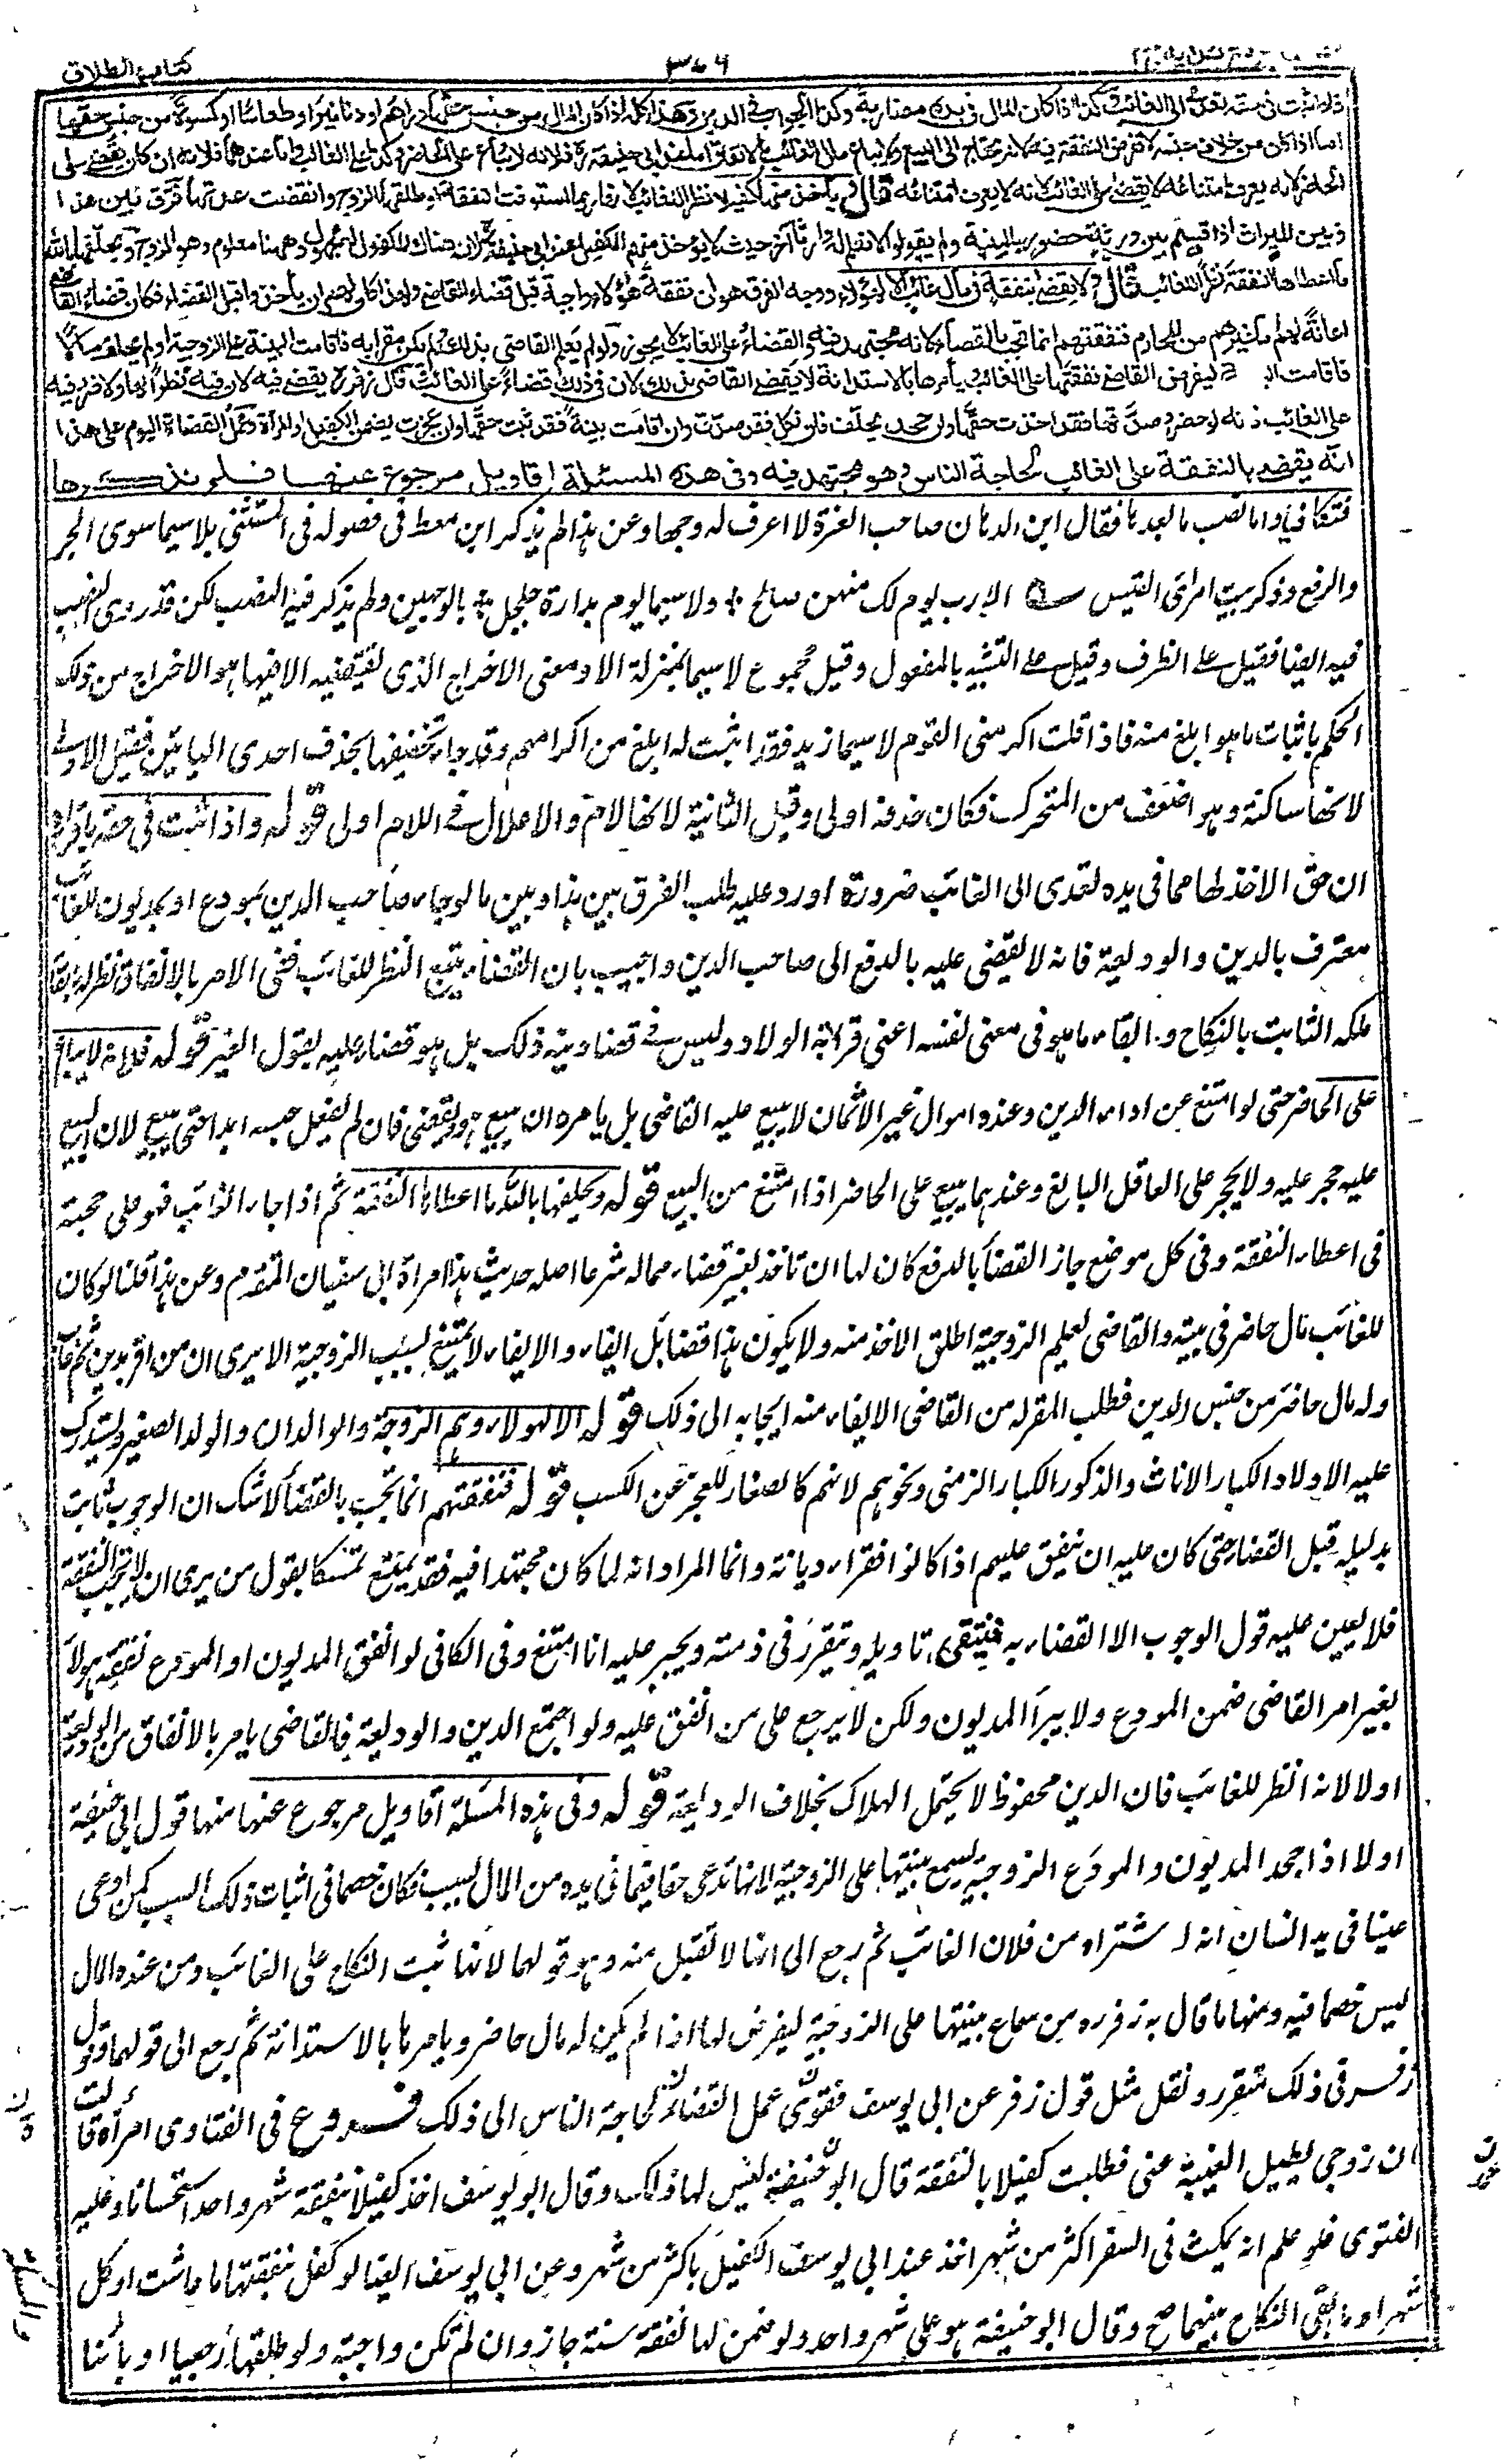 كتاب الطلاق
٣٧٦
اذا ثبت في حقه تعدى الى الغائب وكذا اذا كان المال في يده مضاربة وكذا الجواب في الدين وهذا كله اذا كان المال من جنس حقها دراهم او دنانير او طعاما او كسوة من جنس حقها
اما اذا كان من خلاف جنسه لا تفرض النفقة فيه لانه يحتاج الى البيع ولا يباع مال الغائب بالاتفاق اما عند ابي حنيفة ره فلانه لا يباع على الحاضر وكذا على الغائب واما عندهما فلانه ان كان يقضي على
الحاضر لانه يعرف امتناعه لا يقضي على الغائب لانه لا يعرف امتناعه قال ويأخذ منها كفيلا نظرا للغائب لانها ربما استوفت النفقة او طلقها الزوج وانقضت عدتها فرق بين هذا
وبين الميراث اذا قسم بين ورثة حضور بالبينة ولم يقولوا لا نعلم له وارثا آخر حيث لا يؤخذ منهم الكفيل عند ابي حنيفة ره لان هناك المكفول له مجهول وههنا معلوم وهو الزوج ويحلفها بالله
ما اعطاها النفقة نظرا للغائب قال ولا يقضي بنفقة في مال غائب الا لهؤلاء ووجه الفرق هو ان نفقة هؤلاء واجبة قبل قضاء القاضي ولهذا كان لهم ان يأخذوا قبل القضاء فكان قضاء القاضي
اعانة لهم اما غيرهم من المحارم فنفقتهم انما تجب بالقضاء لانه مجتهد فيه والقضاء على الغائب لا يجوز ولو لم يعلم القاضي بذلك ولم يكن مقرا به فاقامت البينة على الزوجية او لم يخلف مالا
فاقامت ال ة ليفرض القاضي نفقتها على الغائب ويأمرها بالاستدانة لا يقضي القاضي بذلك لان في ذلك قضاء على الغائب قال زفر ره يقضي فيه لان فيه نظرا لها ولا ضرر فيه
على الغائب فانه لو حضر وصدقها فقد اخذت حقها وان جحد يحلف فان نكل فقد صدق وان اقامت بينة فقد ثبت حقها وان عجزت يضمن الكفيل او المرأة وعمل القضاة اليوم على هذا
انه يقضي بالنفقة على الغائب لحاجة الناس وهو مجتهد فيه وفي هذه المسئلة اقاويل مرجوع عنها فلم يذكرها
فتكافيا واما نصب ما بعدها فقال ابن الدهان صاحب الغرة لا اعرف له وجها وعن هذا لم يذكر ابن معط في فصوله في المستثنى بلا سيما سوى الجر
والرفع وذكر بيت امرئ القيس الا رب يوم لك منهن صالح ÷ ولا سيما يوم بدارة جلجل ÷ بالوجهين ولم يذكر فيه النصب لكن قد روى النصب
فيه ايضا فقيل على الظرف وقيل على التشبيه بالمفعول وقيل مجموع لا سيما بمنزلة الا ومعنى الاخراج الذي تقتضيه الا فيها هو الاخراج من ذلك
الحكم باثبات ما هو ابلغ منه فاذا قلت اكرمني القوم لا سيما زيد فقد اثبت له ابلغ من اكرامهم وقد جاء تخفيفها بحذف احدى اليائين فقيل الاولى
لانها ساكنة وهو اضعف من المتحرك فكان حذفه اولى وقيل الثانية لانها لام والاعلال في اللام اولى قوله واذا ثبت في حقه باقراره
ان حق الاخذ لها مما في يده تعدى الى الغائب ضرورة اورد عليه طلب الفرق بين هذا وبين ما لو جاء صاحب الدين بمودع او بمديون للغائب
معترف بالدين والوديعة فانه لا يقضي عليه بالدفع الى صاحب الدين واجيب بان القضاء يتبع النظر للغائب ففي الامر بالانفاق نظر له بابقاء
ملكه الثابت بالنكاح و ابقاء ما هو في معنى نفسه اعني قرابة الولاد وليس في قضاء دينه ذلك بل هو قضاء عليه بقول الغير قوله فلانه لا يباع
على الحاضر حتى لو امتنع عن اداء الدين وعنده اموال غير الاثمان لا يبيع عليه القاضي بل يامره ان يبيع هو ويقضي فان لم يفعل حبسه ابدا حتى يبيع لان البيع
عليه حجر عليه ولا يحجر على العاقل البالغ وعندهما يبيع على الحاضر اذا امتنع من البيع قوله ويحلفها بالله ما اعطاها النفقة ثم اذا جاء الغائب فهو على حجته
في اعطاء النفقة وفي كل موضع جاز القضاء بالدفع كان لها ان تاخذ بغير قضاء من ماله شرعا اصله حديث هند امرأة ابي سفيان المتقدم وعن هذا قلنا لو كان
للغائب مال حاضر في بيته والقاضي يعلم الزوجية اطلق الاخذ منه ولا يكون هذا قضاء بل ايفاء والايفاء لا يمتنع بسبب الزوجية الا يرى ان من اقر بدين ثم غاب
وله مال حاضر من جنس الدين فطلب المقر له من القاضي الايفاء منه اجابه الى ذلك قوله الا لهؤلاء وهم الزوجة والوالدان والولد الصغير ويستدرك
عليه الاولاد الكبار الاناث والذكور الكبار الزمنى ونحوهم لانهم كالصغار للعجز عن الكسب قوله فنفقتهم انما تجب بالقضاء لا شك ان الوجوب ثابت
بدليله قبل القضاء حتى كان عليه ان ينفق عليهم اذا كانوا فقراء ديانة وانما المراد انه لما كان مجتهدا فيه فقد يمتنع تمسكا بقول من يرى ان لا تجب النفقة
فلا يعين عليه قول الوجوب الا القضاء به فينتقي تاويله ويتقرر في ذمته ويجبر عليه اذا امتنع وفي الكافي لو انفق المديون او المودع نفقة هؤلاء
بغير امر القاضي ضمن المودع ولا يبرأ المديون ولكن لا يرجع على من انفق عليه ولو اجتمع الدين والوديعة فالقاضي يامر بالانفاق من الوديعة
اولا لانه انظر للغائب فان الدين محفوظ لا يحتمل الهلاك بخلاف الوديعة قوله وفي هذه المسئلة اقاويل مرجوع عنها منها قول ابي حنيفة
اولا اذا جحد المديون والمودع الزوجية تسمع بينتها على الزوجية لانها تدعي حقا فيما في يده من المال بسبب فكان خصما في اثبات ذلك السبب كمن ادعى
عينا في يد انسان انه اشتراه من فلان الغائب ثم رجع الى انها لا تقبل منه وهو قولهما لانها تثبت النكاح على الغائب ومن عنده المال
ليس خصما فيه ومنها ما قال به زفر ره من سماع بينتها على الزوجية ليفرض لها اذا لم يكن له مال حاضر ويامرها بالاستدانة ثم رجع الى قولهما وقول
زفر في ذلك متقرر ونقل مثل قول زفر عن ابي يوسف فقوى عمل القضاة لحاجة الناس الى ذلك فروع في الفتاوى امرأة قالت
ان زوجي يطيل الغيبة عني فطلبت كفيلا بالنفقة قال ابو حنيفة ليس لها ذلك وقال ابو يوسف اخذ كفيلا بنفقة شهر واحد استحسانا وعليه
الفتوى فلو علم انه يمكث في السفر اكثر من شهر اخذ عند ابي يوسف الكفيل باكثر من شهر وعن ابي يوسف ايضا لو كفل بنفقتها ما عاشت او كل
شهر او ما بقي النكاح بينهما صح وقال ابو حنيفة هو على شهر واحد ولو ضمن لها نفقة سنة جاز وان لم تكن واجبة ولو طلقها رجعيا او بائنا